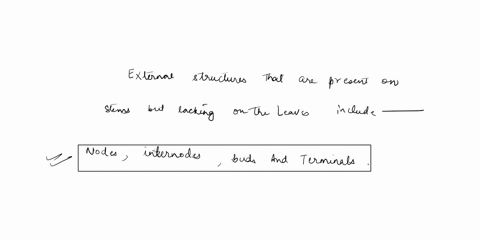 External structures that are present on
stems but lacking on the Leaves include
Nodes, internodes, buds And Terminals.